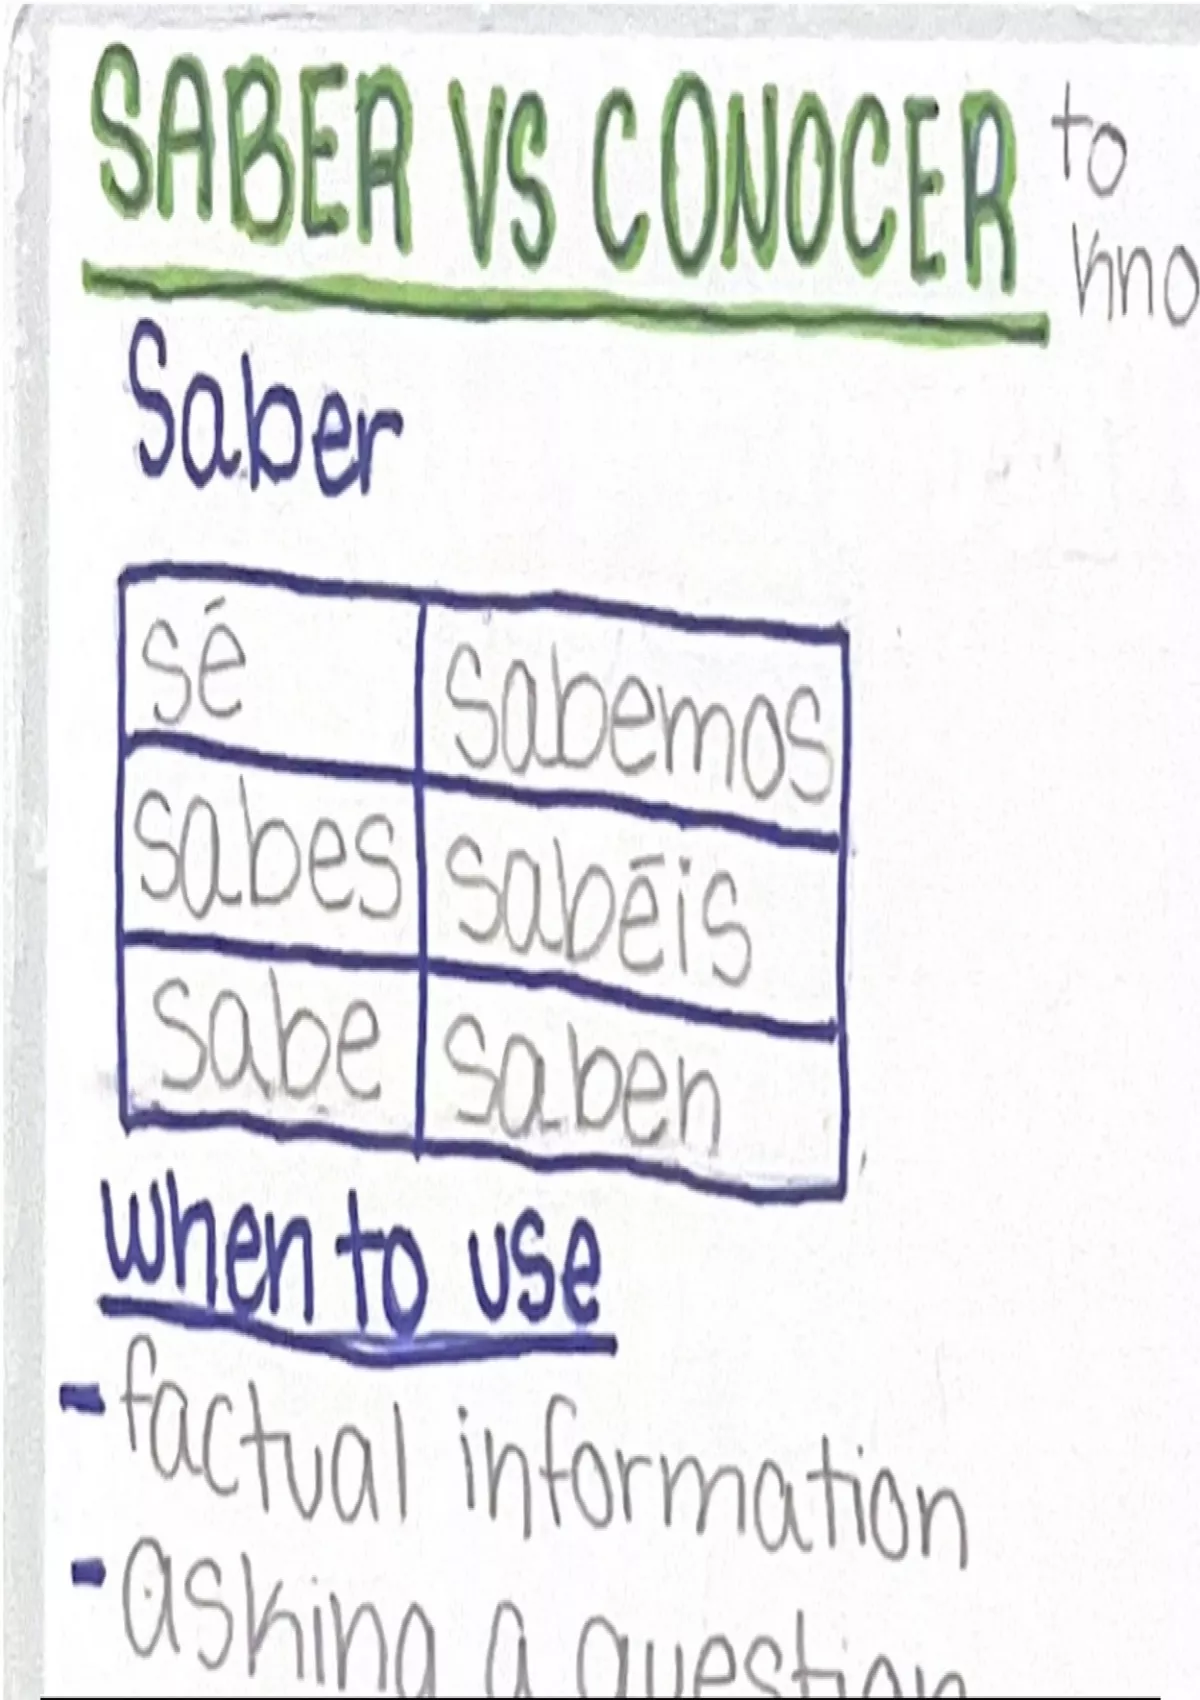 SABER VS CONOCER to
kno
Saber
sé sabemos
sabes sabéis
sabe saben
when to use
- factual information
- asking a question